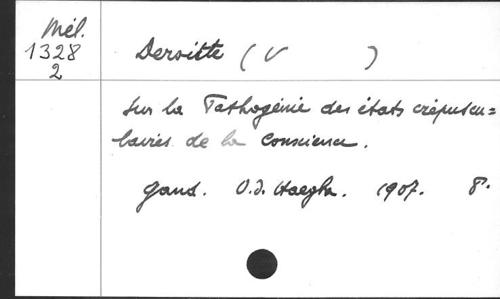 Mél.
1328
2
Deroitte (V )
Sur la Pathogénie des états crépuscu=
laires de la Conscience.
Gand. 1907. 8°.